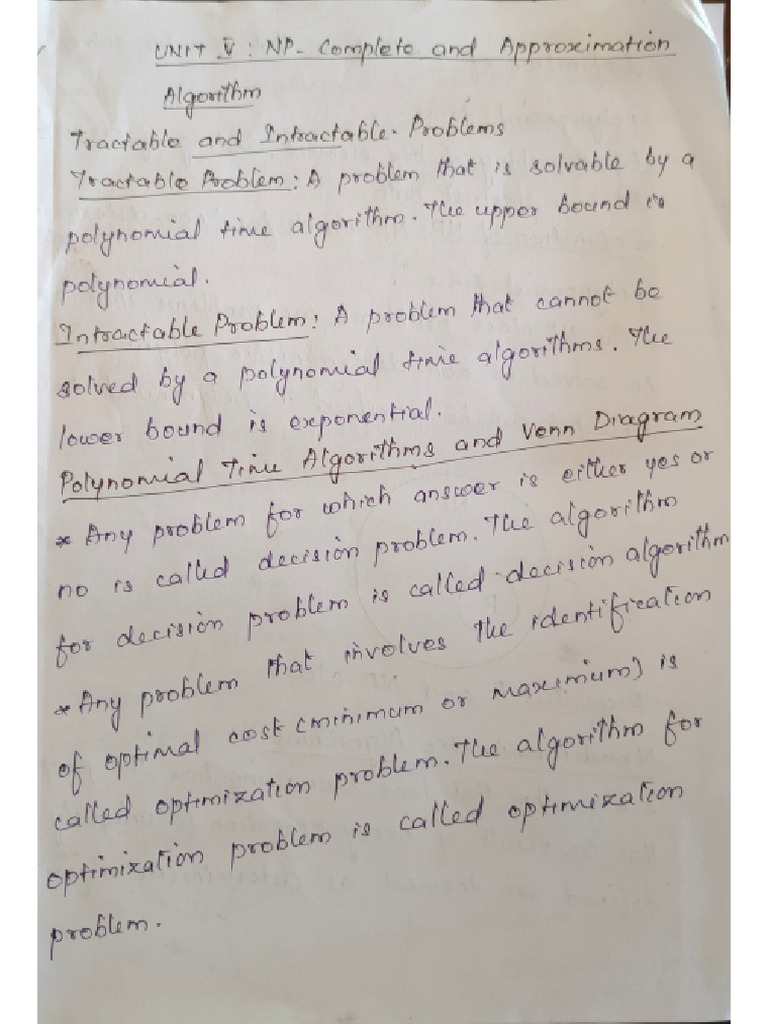 UNIT V : NP- Complete and Approximation
Algorithm
Tractable and Intractable. Problems
Tractable Problem: A problem that is solvable by a
polynomial time algorithm. The upper bound is
polynomial.
Intractable Problem: A problem that cannot be
solved by a polynomial time algorithms. The
lower bound is exponential.
Polynomial Time Algorithms and Venn Diagram
* Any problem for which answer is either yes or
no is called decision problem. The algorithm
for decision problem is called decision algorithm
* Any problem that involves the identification
of optimal cost (minimum or maximum) is
called optimization problem. The algorithm for
optimization problem is called optimization
problem.